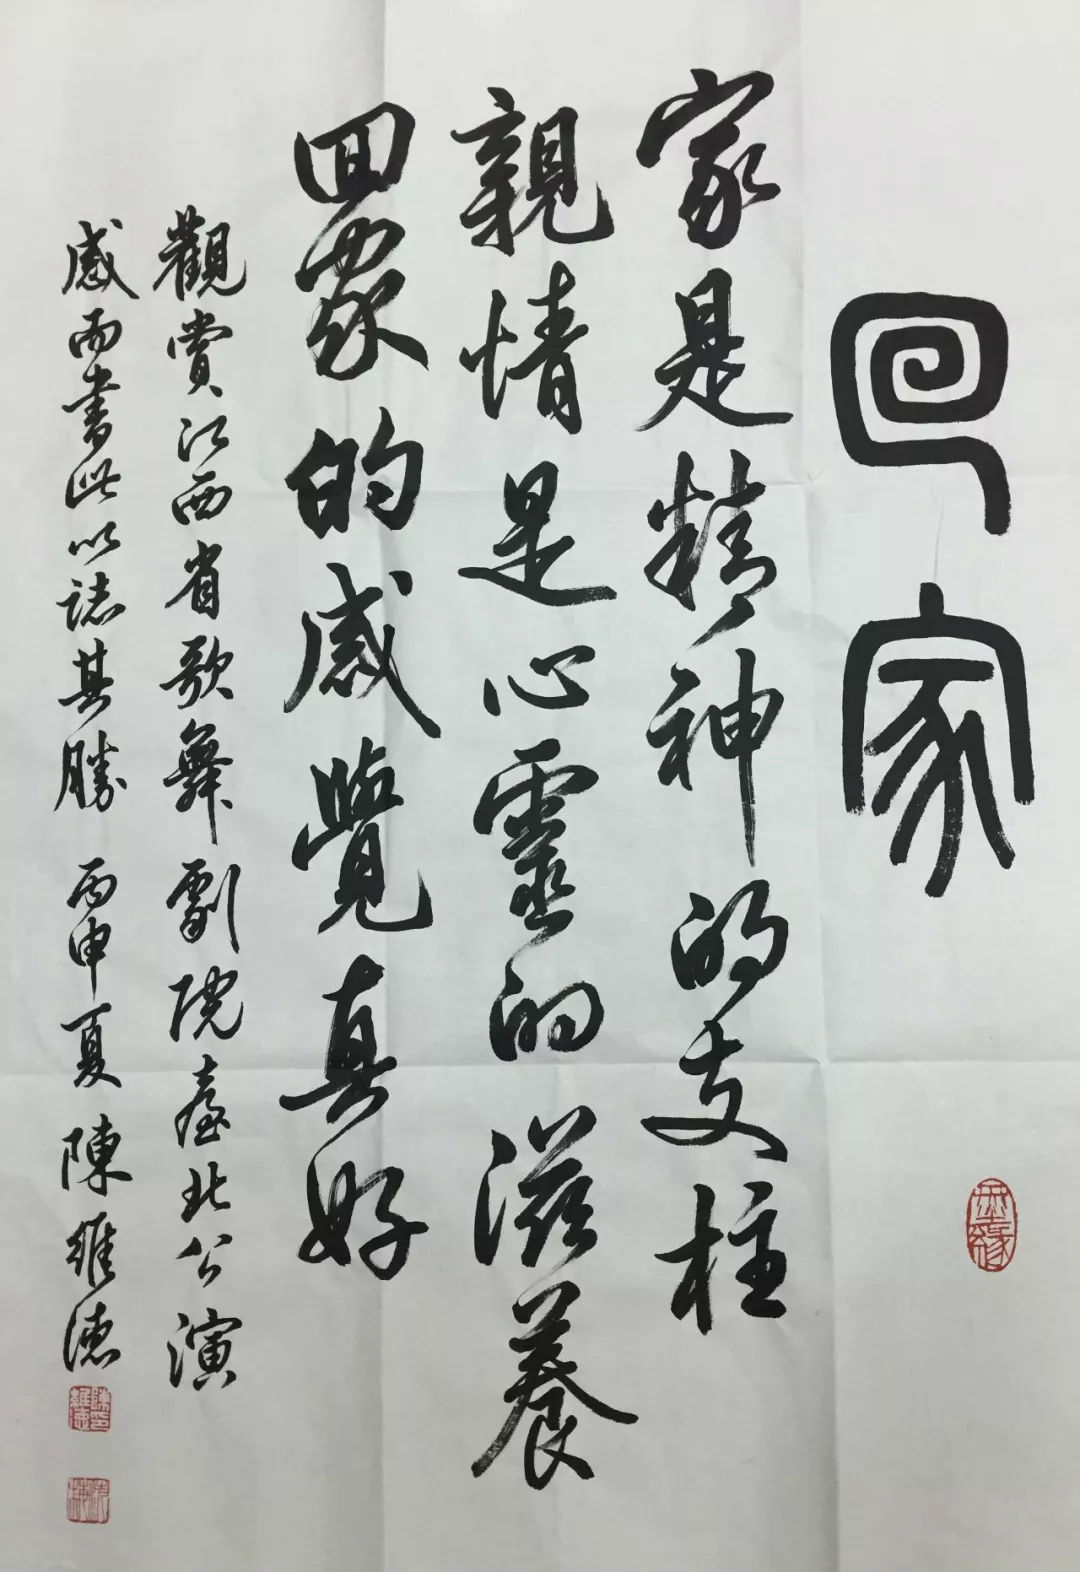 回家
家是精神的支柱
親情是心靈的滋養
回家的感覺真好
觀賞江西省歌舞劇院臺北公演
感而書此以誌其勝 丙申夏 陳維德